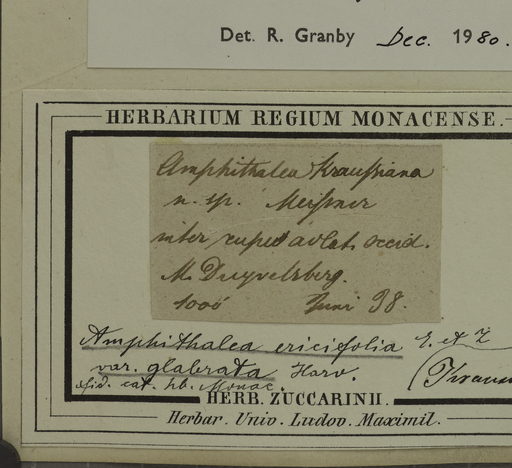 Det. R. Granby Dec. 1980.
HERBARIUM REGIUM MONACENSE.
Amphithalea Kraussiana
n. sp. Meisner
inter rupes occid.
M. Duyvelsberg.
1000' Juni 38.
Amphithalea ericifolia E. et Z
var. glabrata Harv.
fid. cat. hb. Monac. (Krauss
HERB. ZUCCARINII.
Herbar. Univ. Ludov. Maximil.